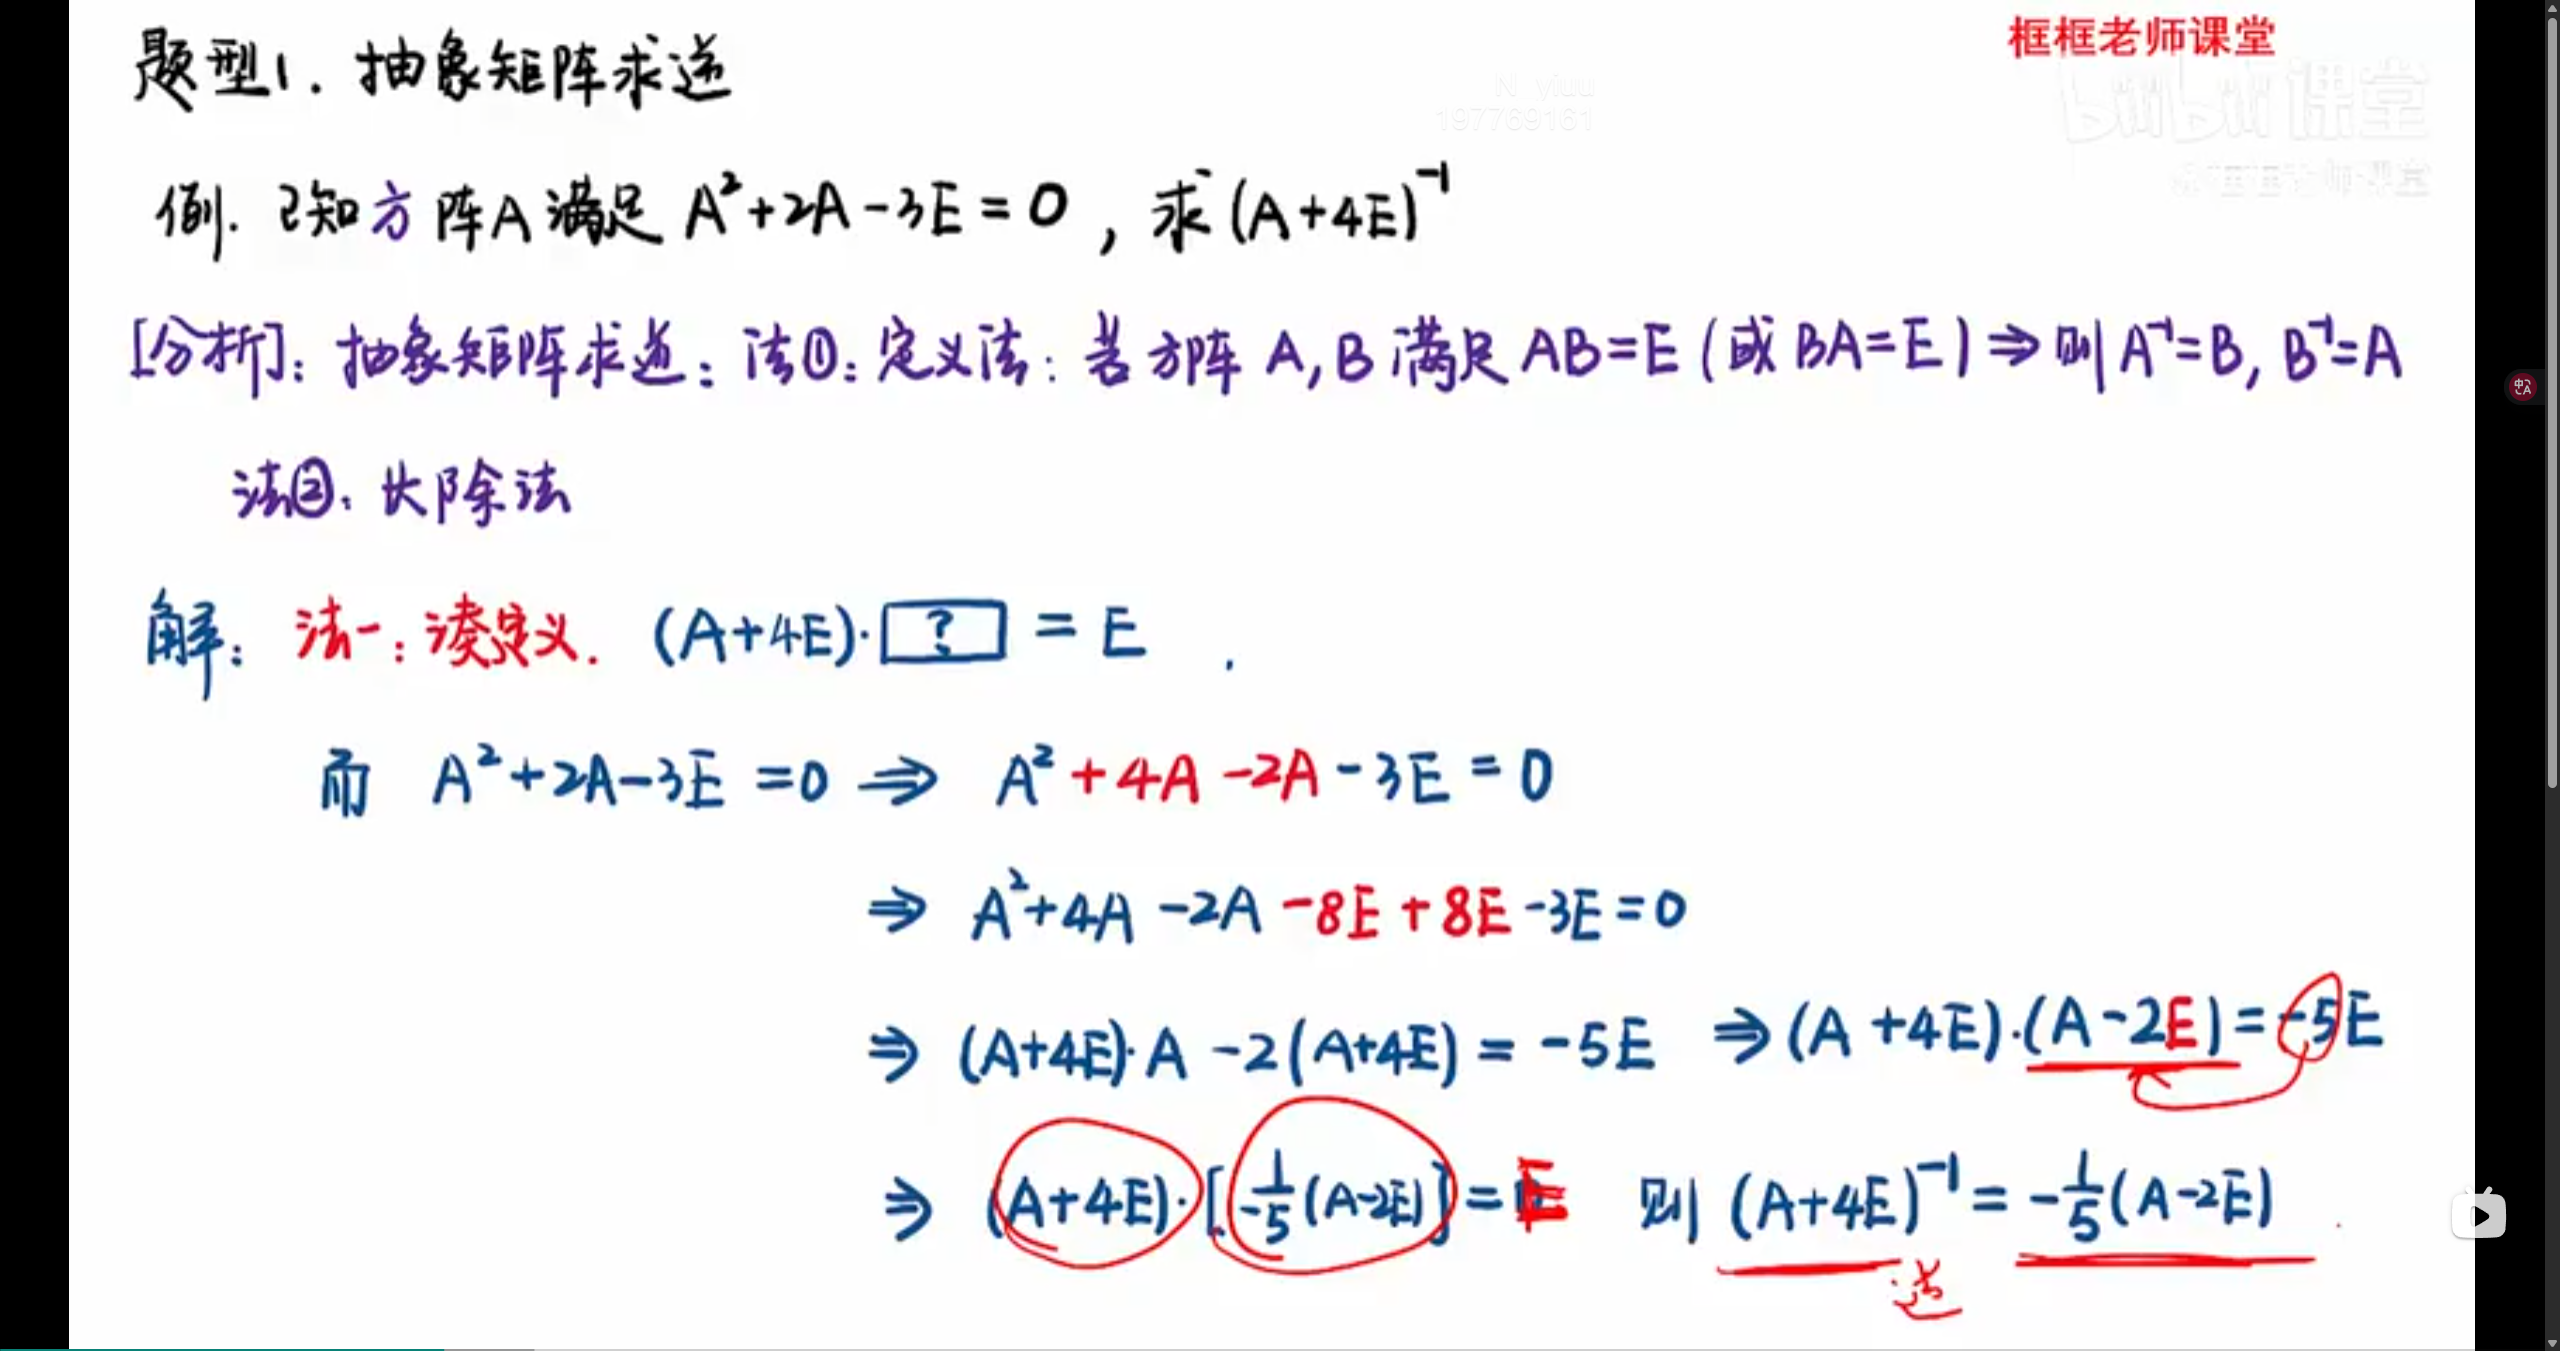 框框老师课堂
题型1. 抽象矩阵求逆
N yiuu
197769161
bilibili课堂
例. 已知方阵A满足 A²+2A-3E=0 , 求(A+4E)⁻¹
[分析]: 抽象矩阵求逆: 法①: 定义法: 若方阵 A,B 满足 AB=E (或 BA=E) ⇒ 则 A⁻¹=B, B⁻¹=A
法②: 长除法
解: 法一: 凑定义. (A+4E)·[?] = E .
而 A²+2A-3E =0 ⇒ A² +4A -2A -3E =0
⇒ A²+4A -2A -8E +8E -3E=0
⇒ (A+4E)·A -2(A+4E) = -5E ⇒ (A+4E)·(A-2E) = -5E
⇒ (A+4E)·[1/-5(A-2E)] = E 则 (A+4E)⁻¹ = -1/5(A-2E)